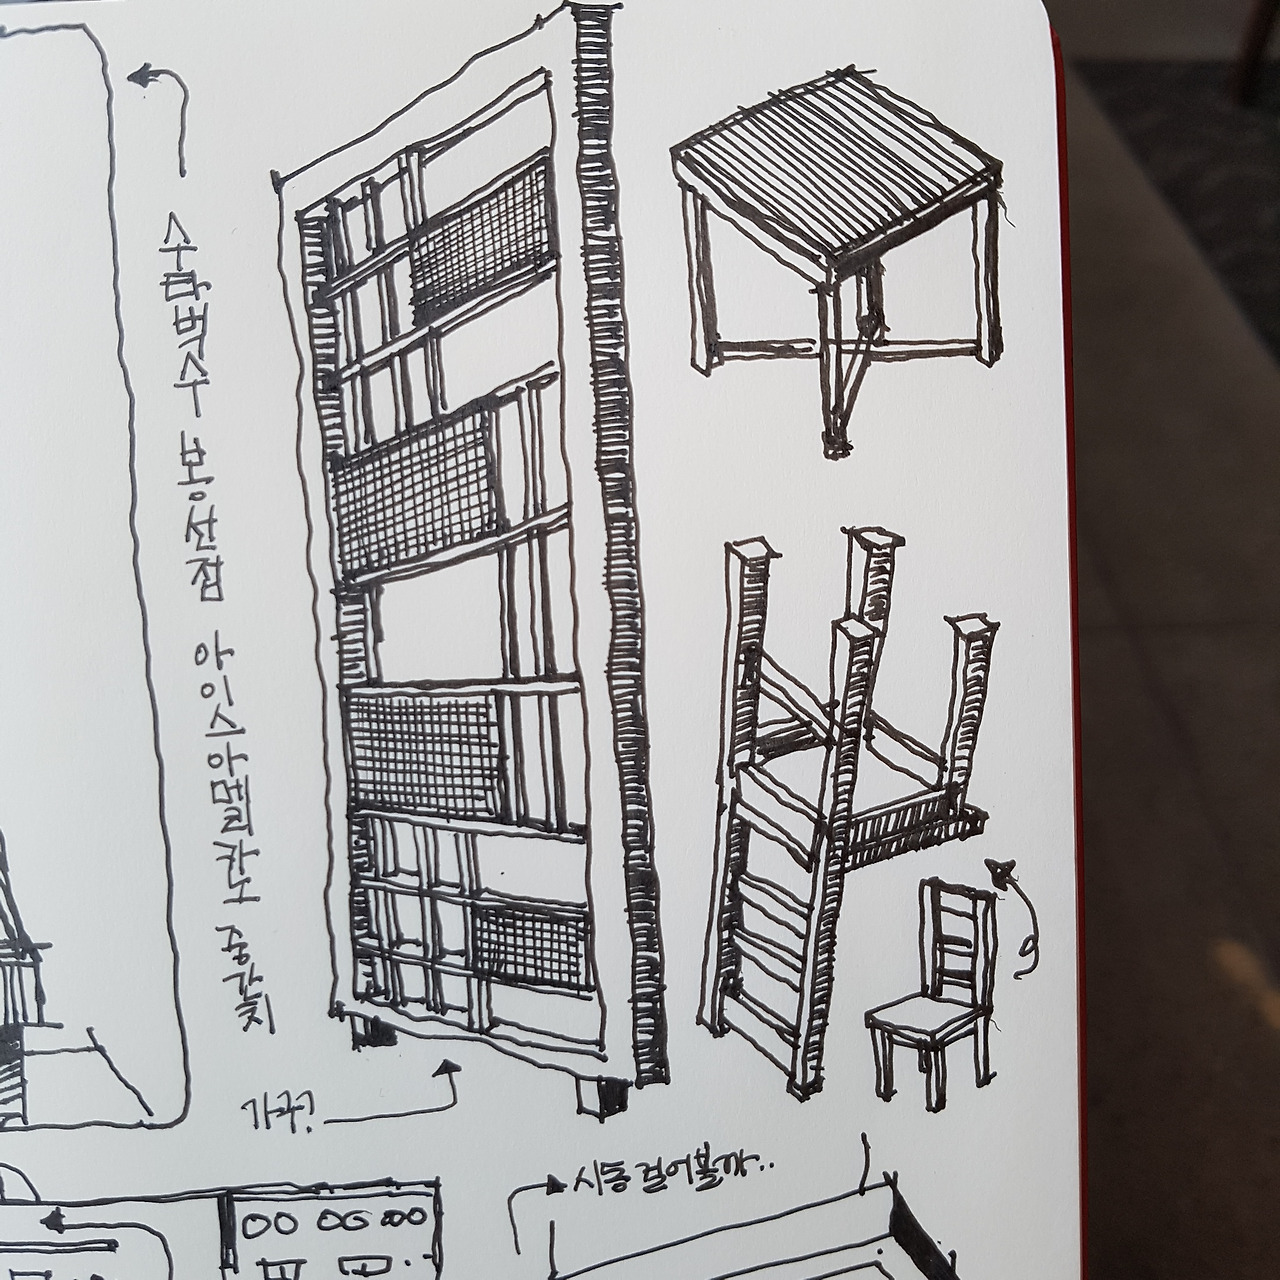 수타벅수 봉선점 아이스아멜리카노 중간치
가구?
시동 걸어볼까..